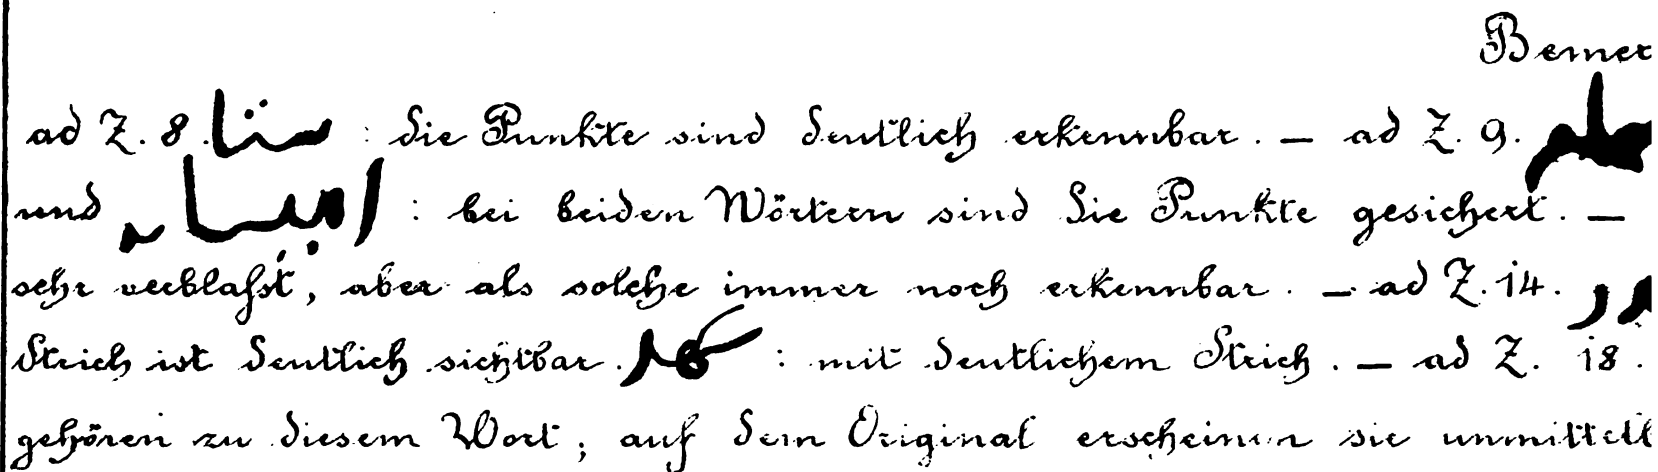 Bemer
ad Z. 8. : die Punkte sind deutlich erkennbar. — ad Z. 9.
und : bei beiden Wörtern sind die Punkte gesichert. —
sehr verblaßt, aber als solche immer noch erkennbar. — ad Z. 14.
Strich ist deutlich sichtbar. : mit deutlichem Strich. — ad Z. 18.
gehören zu diesem Wort; auf dem Original erscheinen sie unmittelb